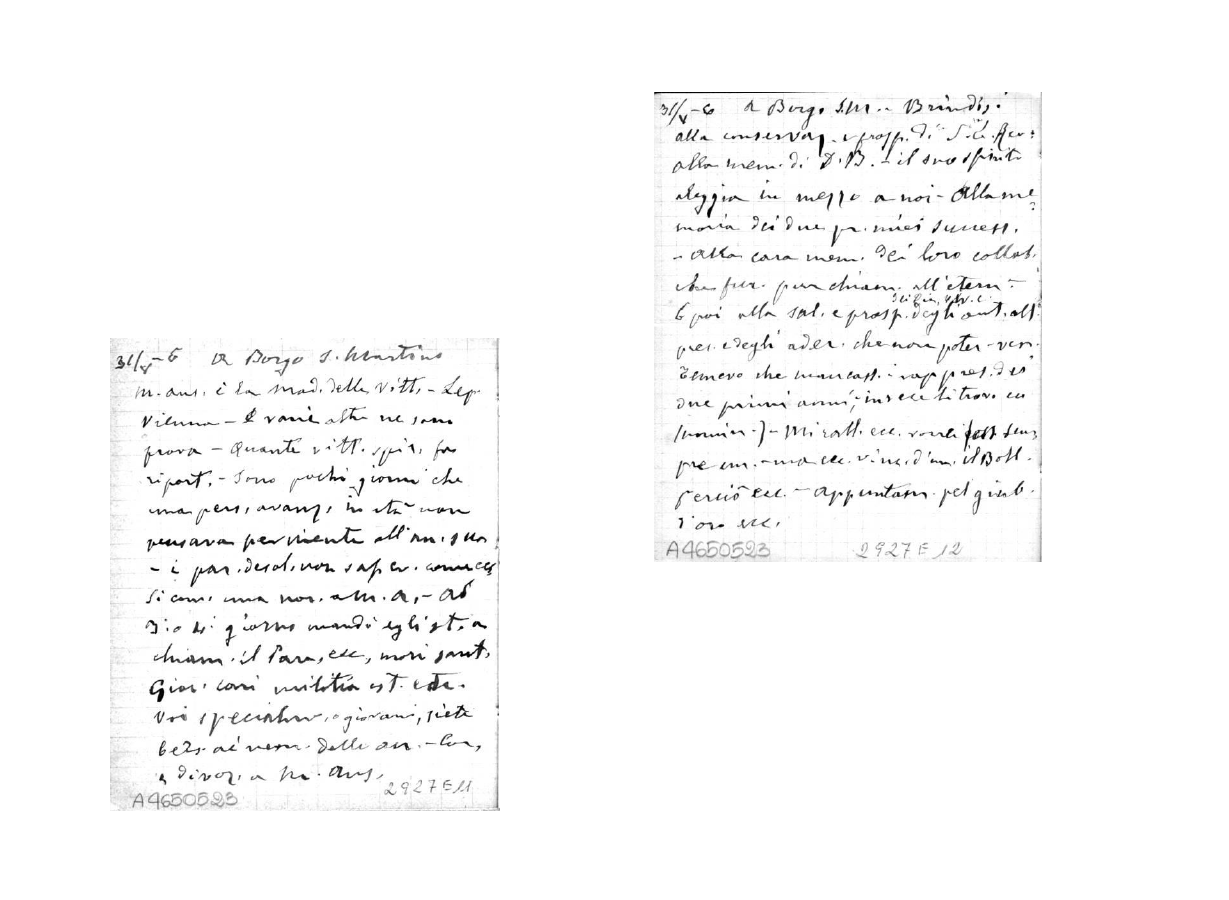 31/V-6 A Borgo S. Martino
M. aus. è la Mad. delle Vitt. - Lep.
Vienna - E varie altre ne sono
prova - Quante vitt. spir. fa
riport. - Sono pochi giorni che
una pers. avanz. in età non
pensava per niente all'an. sua
- i par. desol. non sapev. come
Si com. una nov. a M. A. -
3° o 4° giorno mandò egli st. a
chiam. il Parr. ecc., morì sant.
Giov. cari militia est.
Voi specialm. o giovani, siete
bers. ai nem. delle an. -
divoz. a M. Aus.
2927E11
A4650523
31/V-6 A Borgo S.M. - Brindisi
alla conservaz. e prosp. di S.E.
alla mem. di D.B. - il suo spirito
aleggia in mezzo a noi - Alla me
moria dei due primi success.
- Alla cara mem. dei loro collab.
che fur. pur chiam. all'etern. -
E poi alla sal. e prosp. degli ant. all.
pres. e degli ader. che non poter. ven.
Temevo che mancass. i rappres. dei
due primi anni; invece li trovo
(nomin.) - Mi rall. ecc. vorrei
pre - ma ecc. il Boll.
Perciò ecc. - Appuntam. pel giub.
d'oro ecc.
A4650523 2927E12